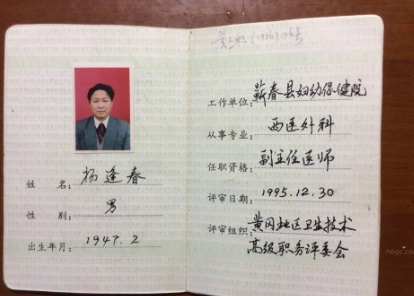 姓 名：杨逢春
性 别：男
出生年月：1947.2
工作单位：蕲春县妇幼保健院
从事专业：西医外科
任职资格：副主任医师
评审日期：1995.12.30
评审组织：黄冈地区卫生技术
高级职务评委会